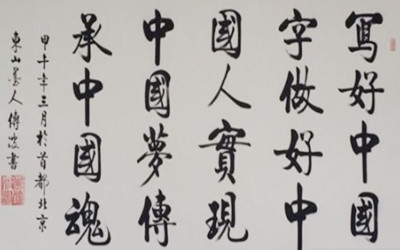 寫好中國
字做好中
國人實現
中國夢傳
承中國魂
甲午年三月於首都北京
東山善人傅波書